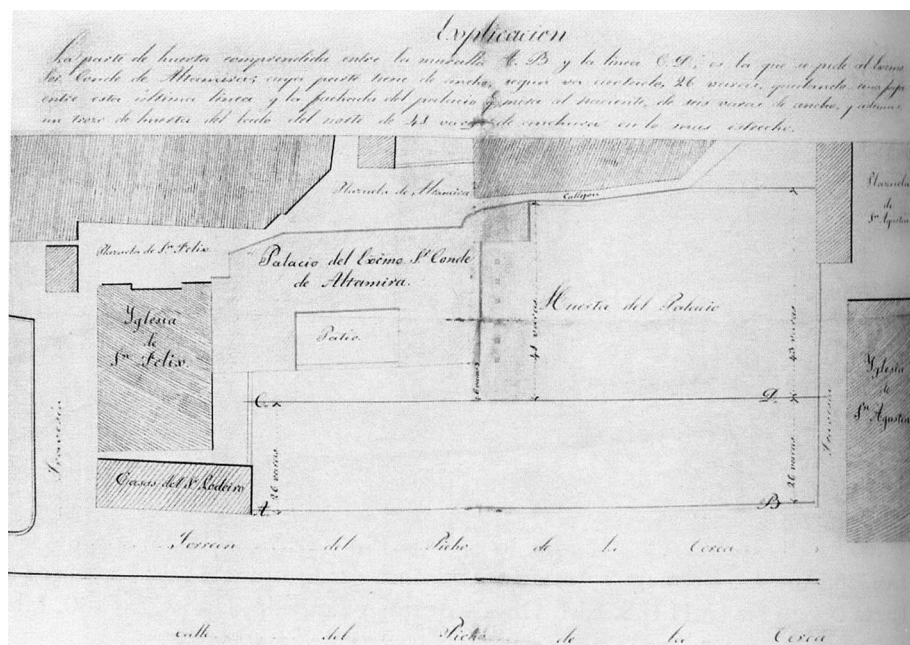 Explicacion
La parte de huerta comprendida entre la muralla A. B y la linea C. D; es la que se pide al Excmo
Sor. Conde de Altamira; cuya parte tiene de ancho, segun va acotado, 26 varas, quedando una faja
entre esta última linea y la fachada del palacio q. mira al naciente, de seis varas de ancho, y ademas
un trozo de huerta del lado del norte de 41 varas de anchura en lo mas estrecho.
Plazuela de Altamira
Callejon
Plazuela
de
Sn. Agustin
Plazuela de Sn. Felix
Palacio del Excmo Sr. Conde
de Altamira.
Huerta del Palacio
Yglesia
de
Sn. Felix.
Patio.
6 varas
41 varas
43 varas
Yglesia
de
Sn. Agustin
C.
D.
Travesia
Travesia
Casas del Sr. Rodeiro
26 varas
26 varas
A
B
del Picho de la Cerca
calle del Picho de la Cerca